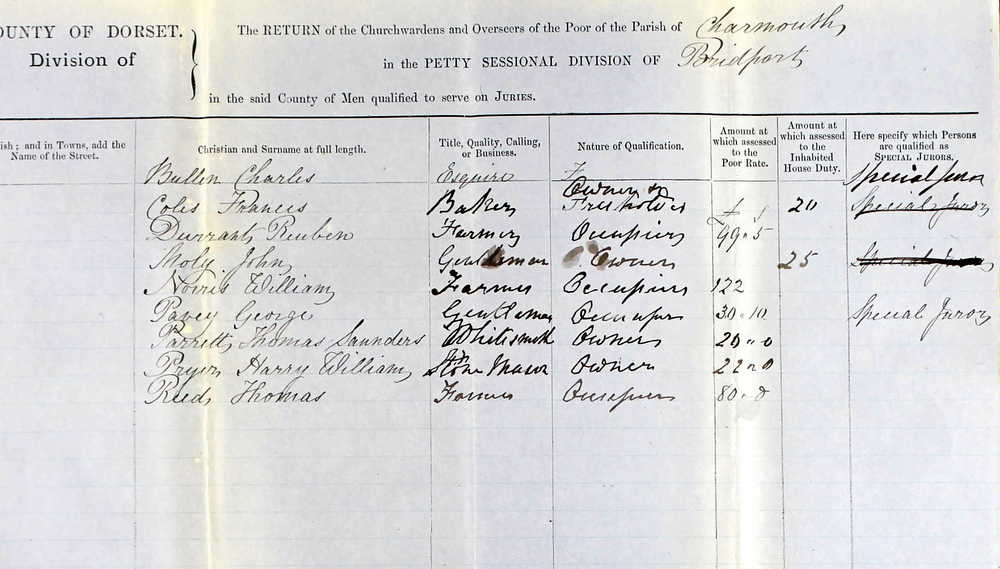 OUNTY OF DORSET.
Division of
The RETURN of the Churchwardens and Overseers of the Poor of the Parish of Charmouth
in the PETTY SESSIONAL DIVISION OF Bridport
in the said County of Men qualified to serve on JURIES.
ish; and in Towns, add the Name of the Street.
Christian and Surname at full length.
Title, Quality, Calling, or Business.
Nature of Qualification.
Amount at which assessed to the Poor Rate.
Amount at which assessed to the Inhabited House Duty.
Here specify which Persons are qualified as SPECIAL JURORS.
Bullen Charles Esquire Special Juror
Owner &
Coles Francis Baker Freeholder 20 Special Juror
Durrant Reuben Farmer Occupier 99.5
Moly John Gentleman Owner 25 Special Juror
Norris William Farmer Occupier 122
Pavey George Gentleman Occupier 30.10 Special Juror
Parrett Thomas Saunders Whitesmith Owner 20.0
Pryer Harry William Stone Mason Owner 22.0
Reed Thomas Farmer Occupier 80.0